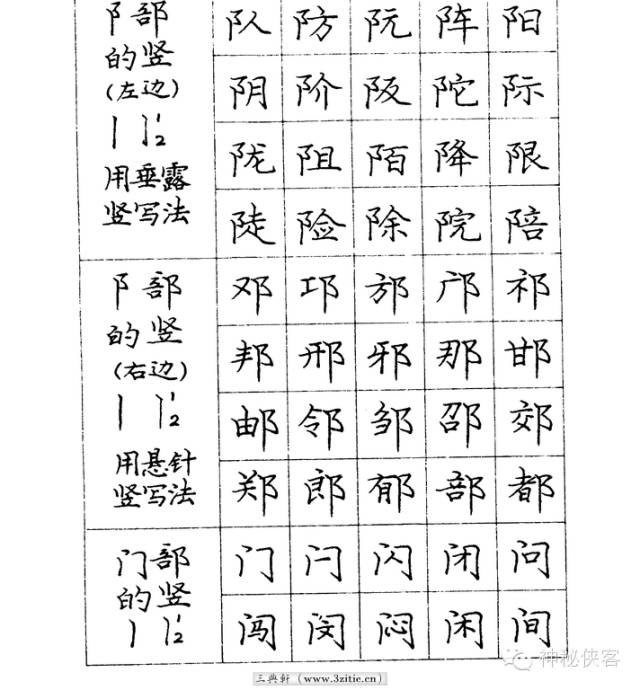 阝部 队 防 阮 阵 阳
的竖
(左边) 阴 阶 阪 陀 际
用垂露 陇 阻 陌 降 限
竖写法 陡 险 除 院 陪
阝部 邓 邛 邡 邝 祁
的竖
(右边) 邦 邢 邪 那 邯
邮 邻 邹 邵 郊
用悬针
竖写法 郑 郎 郁 部 都
门部 门 闩 闪 闭 问
的竖
闯 闵 闷 闲 间
神秘侠客
三典轩 (www.3zitie.cn)